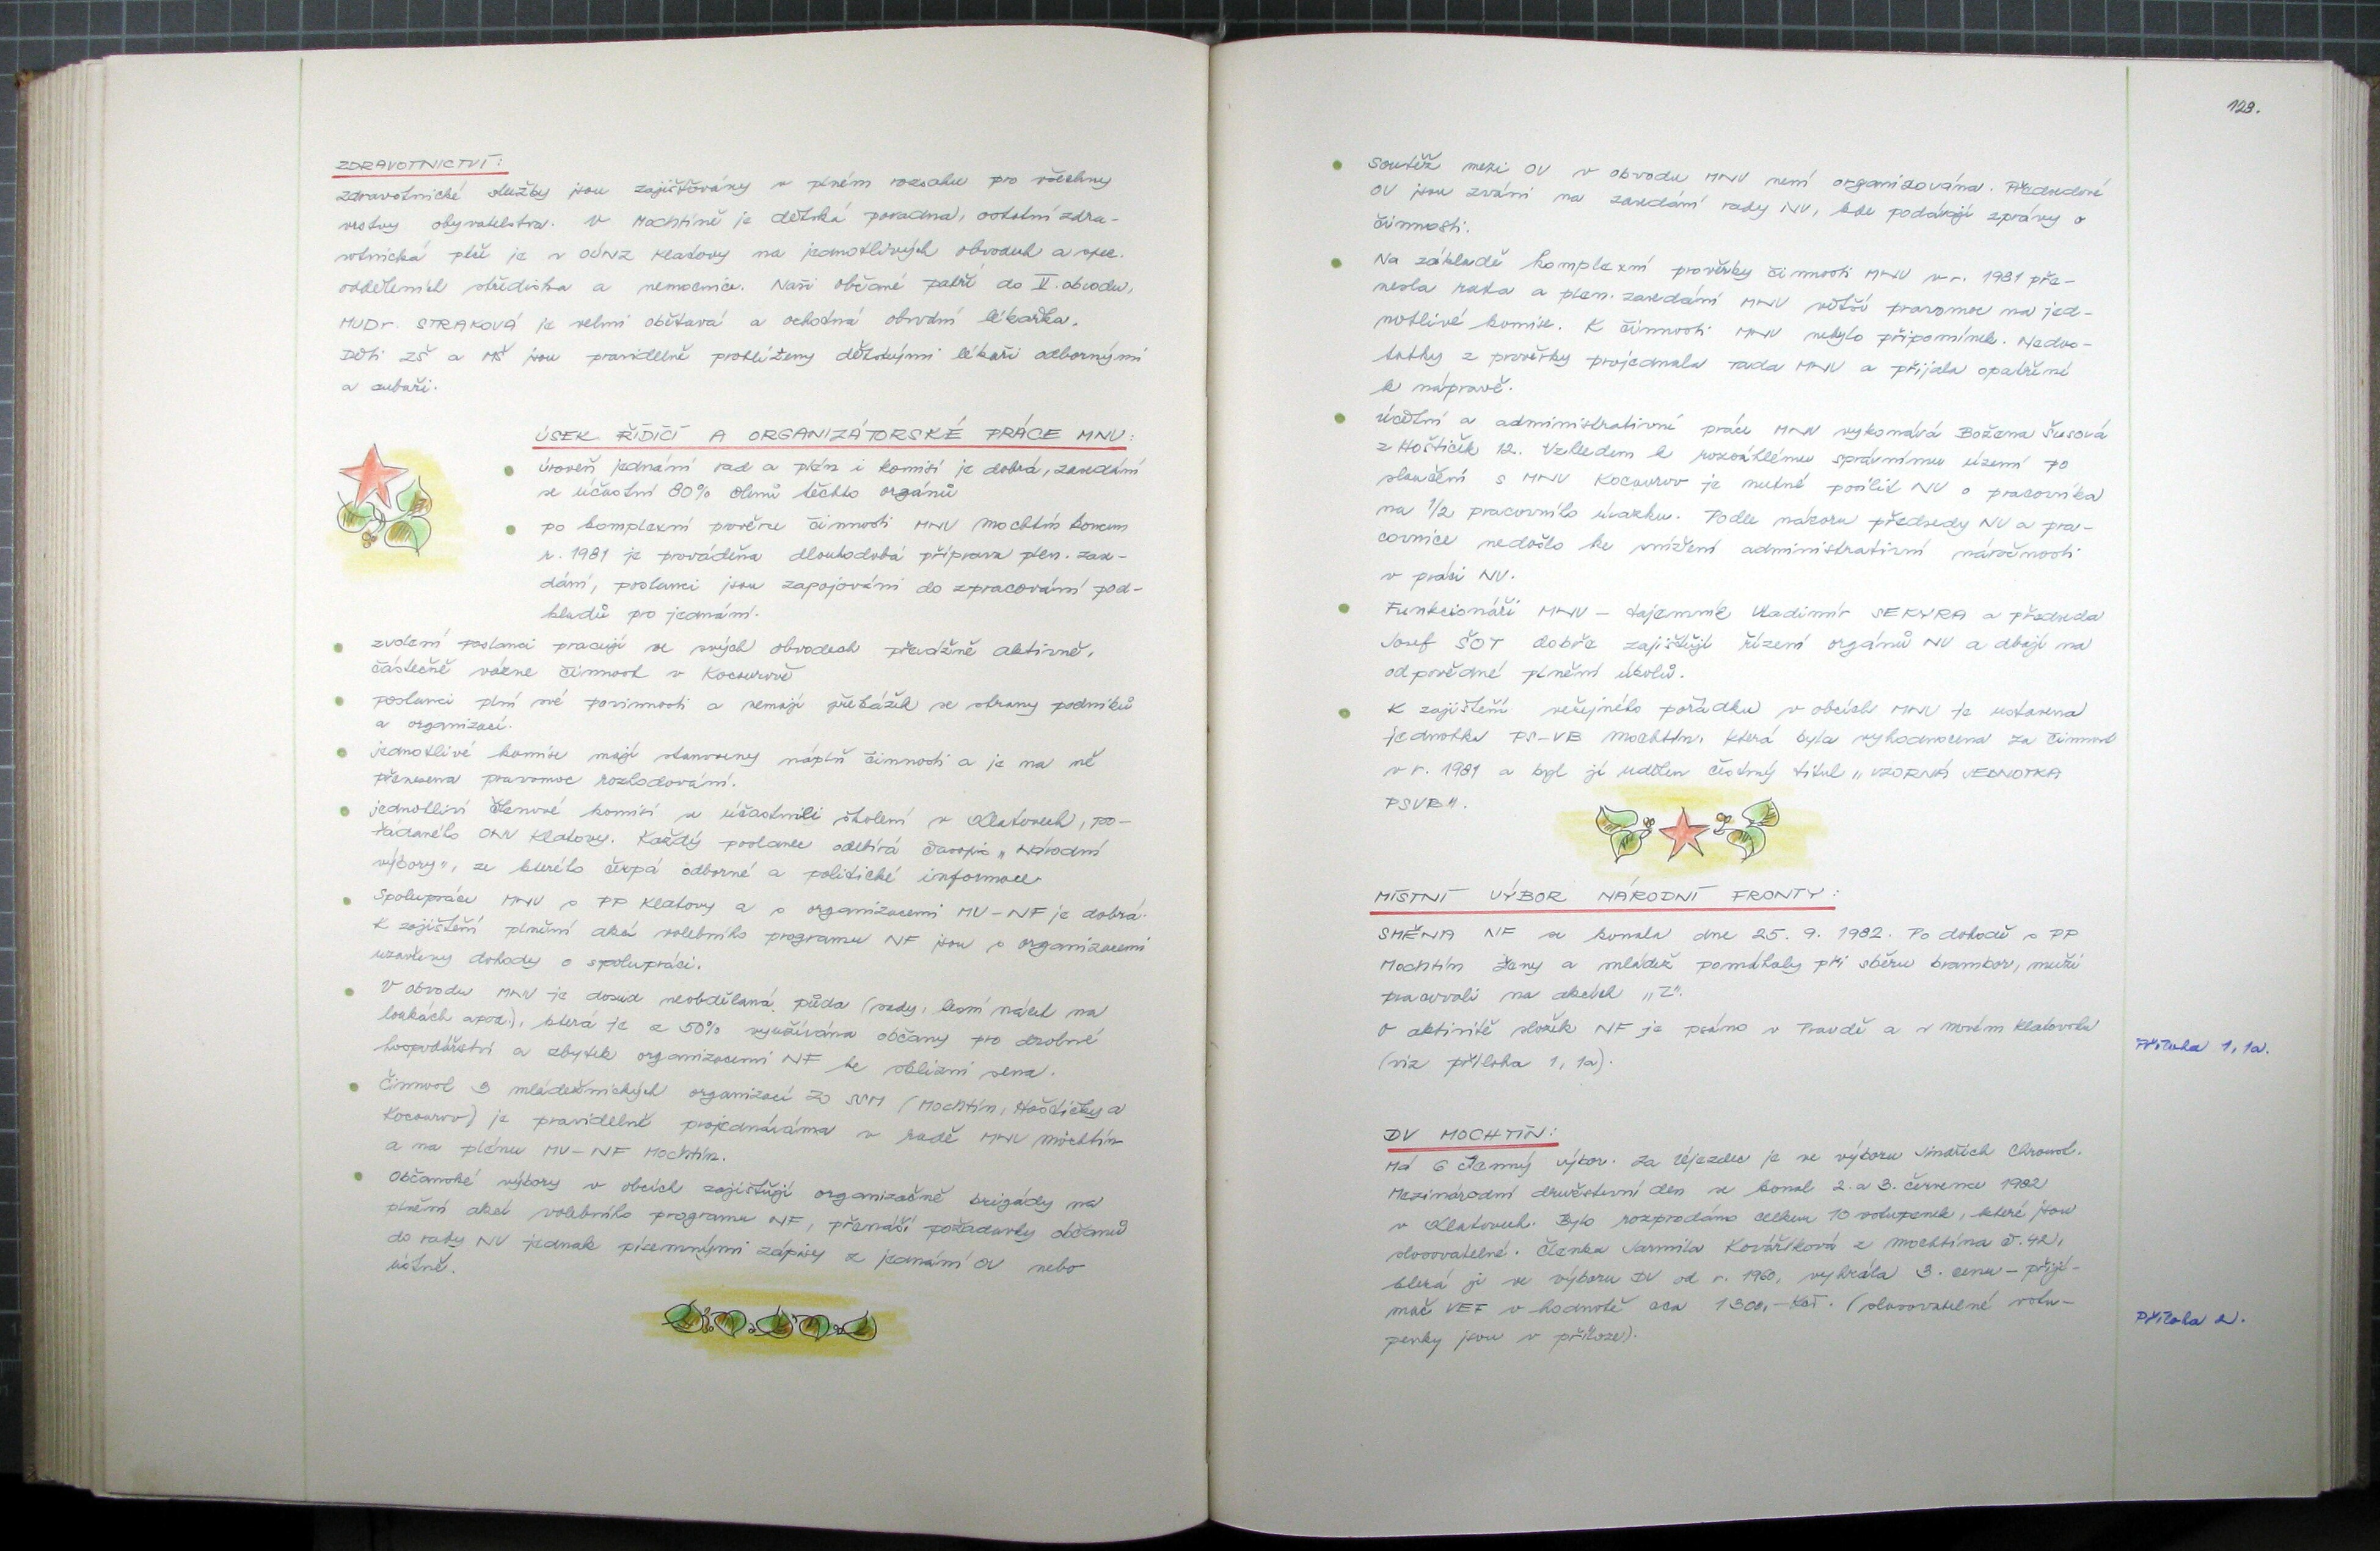 ZDRAVOTNICTVÍ:
Zdravotnické služby jsou zajišťovány v plném rozsahu pro všechny
vrstvy obyvatelstva. V Mochtíně je dětská poradna, ostatní zdra-
votnická péče je v OÚNZ Klatovy na jednotlivých obvodech a spec.
odděleních střediska a nemocnice. Naši občané patří do II. obvodu,
MUDr. STRAKOVÁ je velmi obětavá a ochotná obvodní lékařka.
Děti ZŠ a MŠ jsou pravidelně prohlíženy dětskými lékaři odbornými
a zubaři.
ÚSEK ŘÍDÍCÍ A ORGANIZÁTORSKÉ PRÁCE MNV:
úroveň jednání rad a plén i komisí je dobrá, zasedání
se účastní 80% členů těchto orgánů
po komplexní prověrce činnosti MNV Mochtín koncem
r. 1981 je prováděna dlouhodobá příprava plen. zase-
dání, poslanci jsou zapojováni do zpracování pod-
kladů pro jednání.
zvolení poslanci pracují ve svých obvodech převážně aktivně,
částečně vázne činnost v Kocourově
poslanci plní své povinnosti a nemají překážek se strany podniků
a organizací.
jednotlivé komise mají stanoveny náplň činnosti a je na ně
přenesena pravomoc rozhodování.
jednotliví členové komisí se účastnili školení v Klatovech, po-
řádaného ONV Klatovy. Každý poslanec odebírá časopis „Národní
výbory", ze kterého čerpá odborné a politické informace
Spolupráce MNV s PP Klatovy a s organizacemi MV-NF je dobrá.
K zajištění plnění akcí volebního programu NF jsou s organizacemi
uzavřeny dohody o spolupráci.
V obvodu MNV je dosud neobdělaná půda (sady, lesní nálet na
loukách apod.), která je z 50% využívána občany pro drobné
hospodářství a zbytek organizacemi NF ke sklizni sena.
Činnost 3 mládežnických organizací ZO SSM (Mochtín, Hoštičky a
Kocourov) je pravidelně projednávána v radě MNV Mochtín
a na plénu MV-NF Mochtín.
Občanské výbory v obcích zajišťují organizačně brigády na
plnění akcí volebního programu NF, přenáší požadavky občanů
do rady NV jednak písemnými zápisy z jednání OV nebo
ústně.
123.
Soutěž mezi OV v obvodu MNV není organizována. Předsedové
OV jsou zváni na zasedání rady NV, kde podávají zprávy o
činnosti.
Na základě komplexní prověrky činnosti MNV v r. 1981 pře-
nesla rada a plen. zasedání MNV větší pravomoc na jed-
notlivé komise. K činnosti MNV nebylo připomínek. Nedos-
tatky z prověrky projednala rada MNV a přijala opatření
k nápravě.
účetní a administrativní práce MNV vykonává Božena Šusová
z Hoštiček 12. Vzhledem k rozsáhlému správnímu území po
sloučení s MNV Kocourov je nutné posílit NV o pracovníka
na 1/2 pracovního úvazku. Podle názoru předsedy NV a pra-
covnice nedošlo ke snížení administrativní náročnosti
v práci NV.
Funkcionáři MNV – tajemník Vladimír SEKYRA a předseda
Josef ŠOT dobře zajišťují řízení orgánů NV a dbají na
odpovědné plnění úkolů.
K zajištění veřejného pořádku v obcích MNV je ustavena
jednotka PS-VB Mochtín, která byla vyhodnocena za činnost
v r. 1981 a byl jí udělen čestný titul „VZORNÁ JEDNOTKA
PSVB".
MÍSTNÍ VÝBOR NÁRODNÍ FRONTY:
SMĚNA NF se konala dne 25. 9. 1982. Po dohodě s PP
Mochtín ženy a mládež pomáhaly při sběru brambor, muži
pracovali na akcích „Z".
O aktivitě složek NF je psáno v Pravdě a v Novém Klatovsku
(viz příloha 1, 1a).
Příloha 1, 1a.
DV MOCHTÍN:
Má 6 členný výbor. Za Újezdec je ve výboru Jindřich Chroust.
Mezinárodní družstevní den se konal 2. a 3. července 1982
v Klatovech. Bylo rozprodáno celkem 10 vstupenek, které jsou
slosovatelné. Členka Jarmila Kovaříková z Mochtína č. 42,
která je ve výboru DV od r. 1960, vyhrála 3. cenu – přijí-
mač VEF v hodnotě cca 1300,– Kčs. (slosovatelné vstu-
penky jsou v příloze).
Příloha 2.